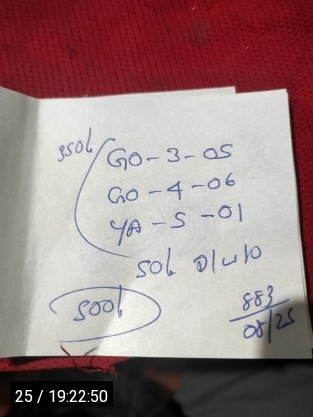 350L
GO-3-05
GO-4-06
YA-5-01
50L
500L
883
08/25
25 / 19:22:50